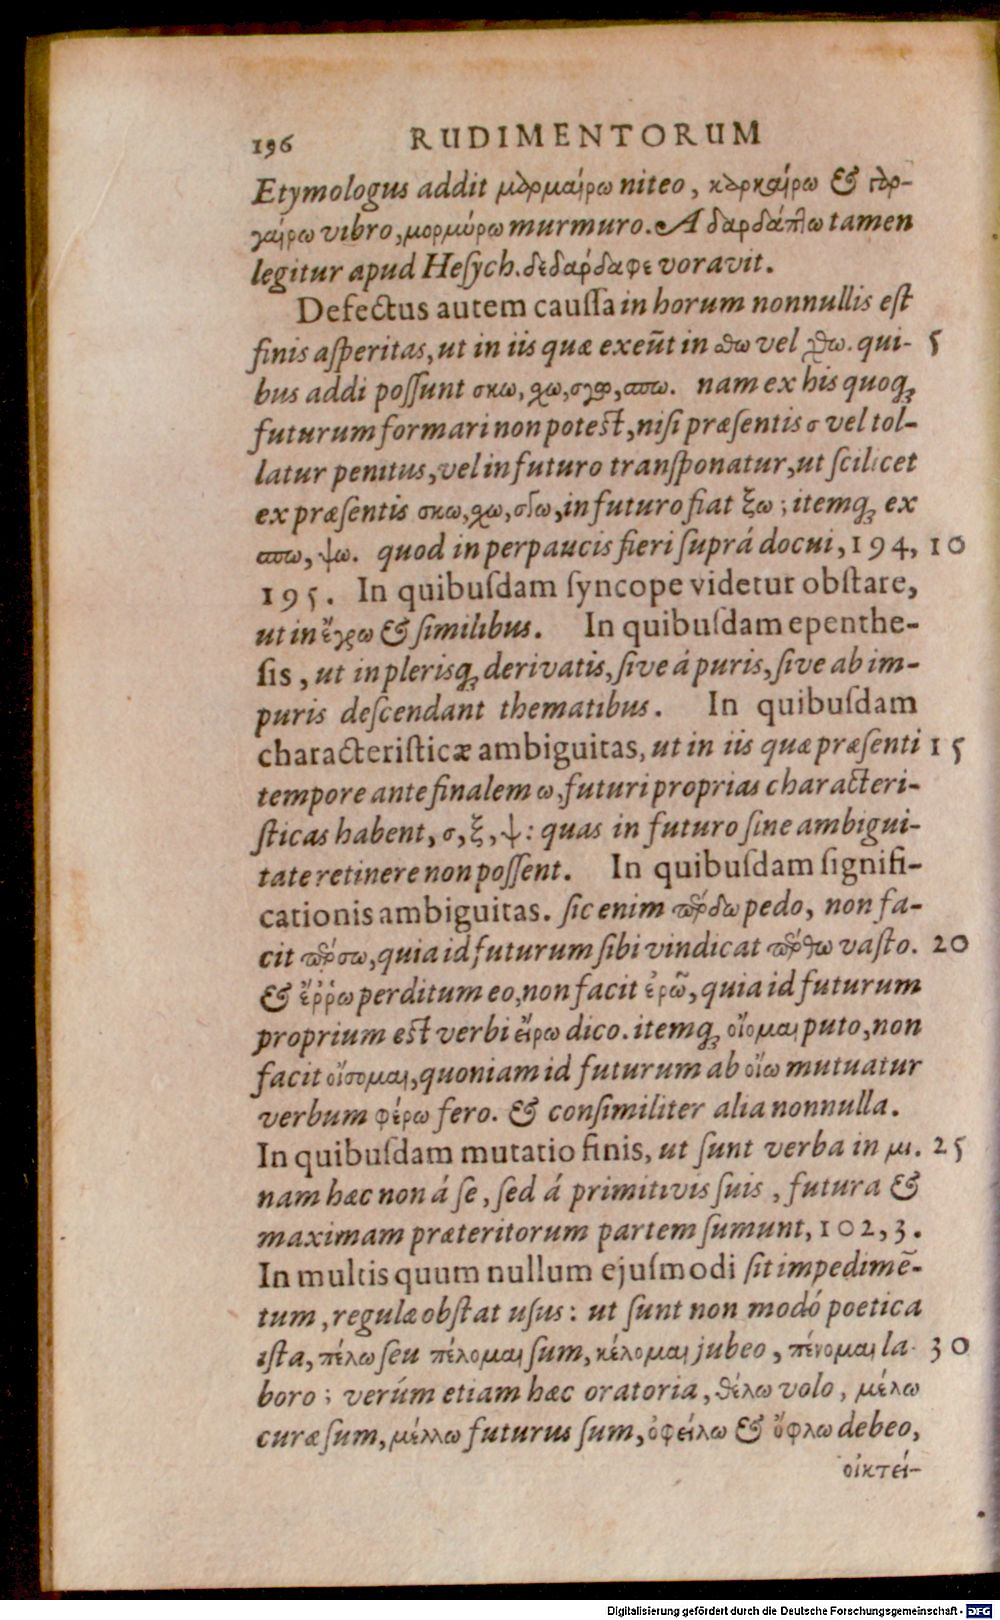 196 RUDIMENTORUM
Etymologus addit μαρμαίρω niteo, καρκαίρω & γαρ-
γαίρω vibro, μορμύρω murmuro. A δαρδάπτω tamen
legitur apud Hesych. δεδαρδαφε voravit.
Defectus autem caussa in horum nonnullis est
finis asperitas, ut in iis quæ exeūt in σθω vel χθω. qui- 5
bus addi possunt σκω, χω, σχω, σπω. nam ex his quoq;
futurum formari non potest, nisi præsentis σ vel tol-
latur penitus, vel in futuro transponatur, ut scilicet
ex præsentis σκω, χω, σγω, in futuro fiat ξω; itemq; ex
σπω, ψω. quod in perpaucis fieri suprá docui, 194, 10
195. In quibusdam syncope videtur obstare,
ut in ἔγρω & similibus. In quibusdam epenthe-
sis, ut in plerisq; derivatis, sive á puris, sive ab im-
puris descendant thematibus. In quibusdam
characteristicæ ambiguitas, ut in iis quæ præsenti 15
tempore ante finalem ω, futuri proprias characteri-
sticas habent, σ, ξ, ψ: quas in futuro sine ambigui-
tate retinere non possent. In quibusdam signifi-
cationis ambiguitas. sic enim πέρδω pedo, non fa-
cit πέρσω, quia id futurum sibi vindicat πέρθω vasto. 20
& ἔῤῥω perditum eo, non facit ἐρῶ, quia id futurum
proprium est verbi εἴρω dico. itemq; οἴομαι puto, non
facit οἴσομαι, quoniam id futurum ab οἴω mutuatur
verbum φέρω fero. & consimiliter alia nonnulla.
In quibusdam mutatio finis, ut sunt verba in μι. 25
nam hæc non á se, sed á primitivis suis, futura &
maximam præteritorum partem sumunt, 102, 3.
In multis quum nullum ejusmodi sit impedimē-
tum, regulæ obstat usus: ut sunt non modó poetica
ista, πέλω seu πέλομαι sum, κέλομαι jubeo, πένομαι la- 30
boro; verúm etiam hæc oratoria, θέλω volo, μέλω
curæ sum, μέλλω futurus sum, ὀφείλω & ὄφλω debeo,
οἰκτεί-
Digitalisierung gefördert durch die Deutsche Forschungsgemeinschaft - DFG